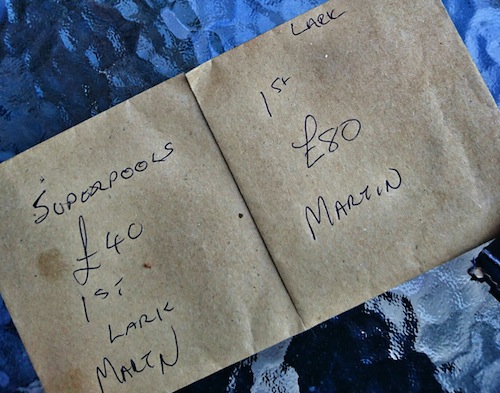 SUPERPOOLS
£40
1ST
LARK
MARTN
LARK
1st
£80
MARTIN